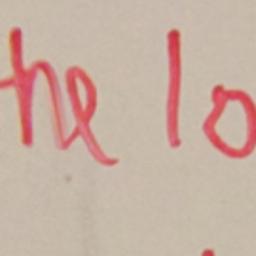 the lo